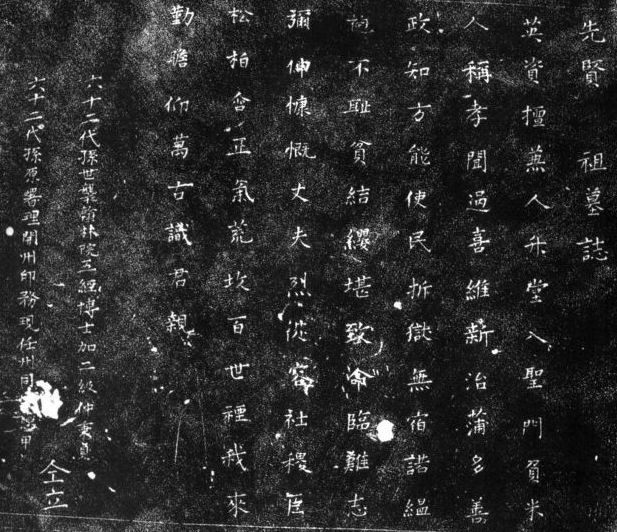 先賢 祖墓誌
英資擅兼人升堂入聖門負米
人稱孝聞過喜維新治蒲多善
政知方能使民折獄無宿諾縕
袍不耻貧結纓堪致命臨難志
彌伸慷慨丈夫烈從容社稷臣
松柏含正氣荒坟百世禋我來
勤瞻仰萬古識君親
六十二代孫世襲翰林院五經博士加二級仲秉貞
六十二代孫原署理開州印務現任州同甲
仝立